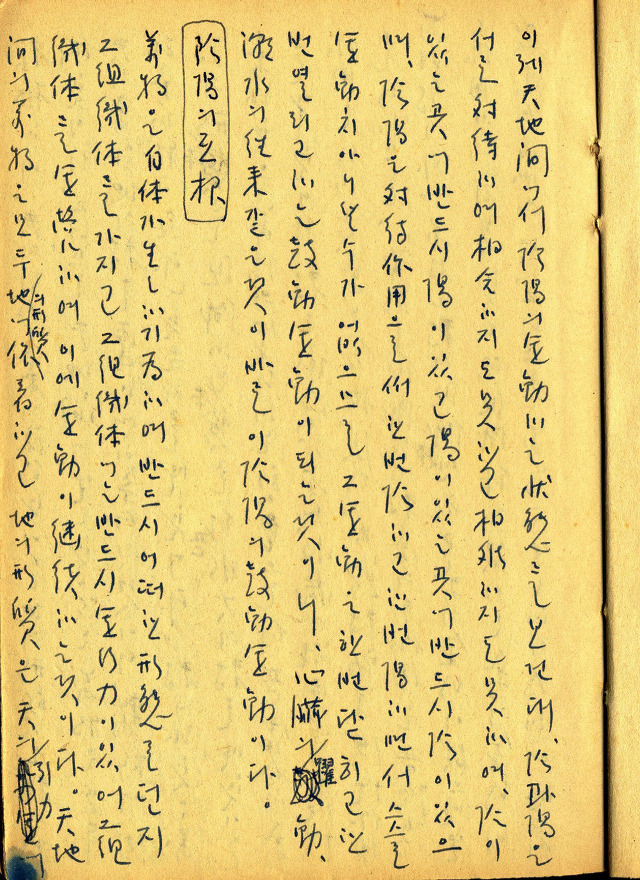 이제 天地間에서 陰陽의 運動하는 狀態를 보건대, 陰과 陽은
서로 對待하여 相合하지도 못하고 相離하지도 못하여, 陰이
있는 곳에 반드시 陽이 있고 陽이 있는 곳에 반드시 陰이 있으
며, 陰陽은 對待作用으로써 한번 陰하고 한번 陽하면서 스스로
運動치 아니할 수가 없으므로 그 運動은 한번 닫히고 한
번 열리고 하는 鼓動運動이 되는 것이니, 心臟의 躍動,
潮水의 往來 같은 것이 바로 이 陰陽의 鼓動運動이다.
陰陽의 互根
萬物은 自体가 生하기 爲하여 반드시 어떠한 形態로던지
그 組織体를 가지고 그 組織体에는 반드시 運行力이 있어 그 組
織体를 運營하여 이에 運動이 継続하는 것이다. 天地
間의 萬物은 모두 地의 形質에 依着하고 地의 形質은 天의 引力에